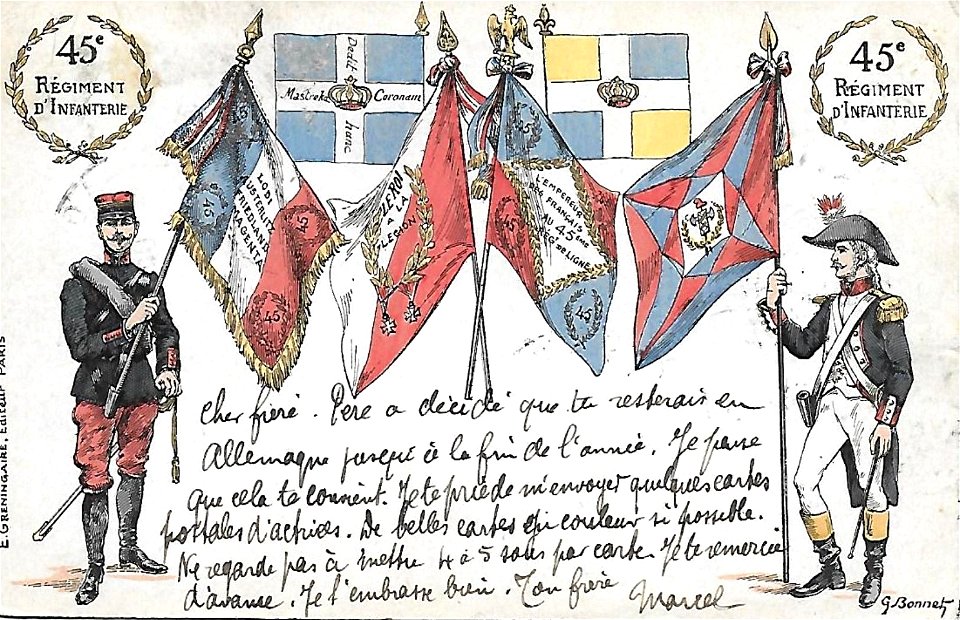 45e
RÉGIMENT
D'INFANTERIE
45e
RÉGIMENT
D'INFANTERIE
Dedit
Mastreka Coronam
45
45
LODI
AUSTERLITZ
FRIEDLAND
MAGENTA
45
45
LE ROI
A LA
LÉGION
45
L'EMPEREUR
DES FRANÇAIS
AU 45ÈME
RÉGT DE LIGNE
45
Cher frère. Père a décidé que tu resterais en
Allemagne jusqu'à la fin de l'année. Je pense
que cela te convient. Je te prie de m'envoyer quelques cartes
postales d'actrices. De belles cartes en couleur si possible.
Ne regarde pas à mettre 4 à 5 sous par carte. Je te remercie
d'avance. Je t'embrasse bien. Ton frère Marcel
E. GRENINGAIRE, EDITEUR PARIS
G. Bonnet